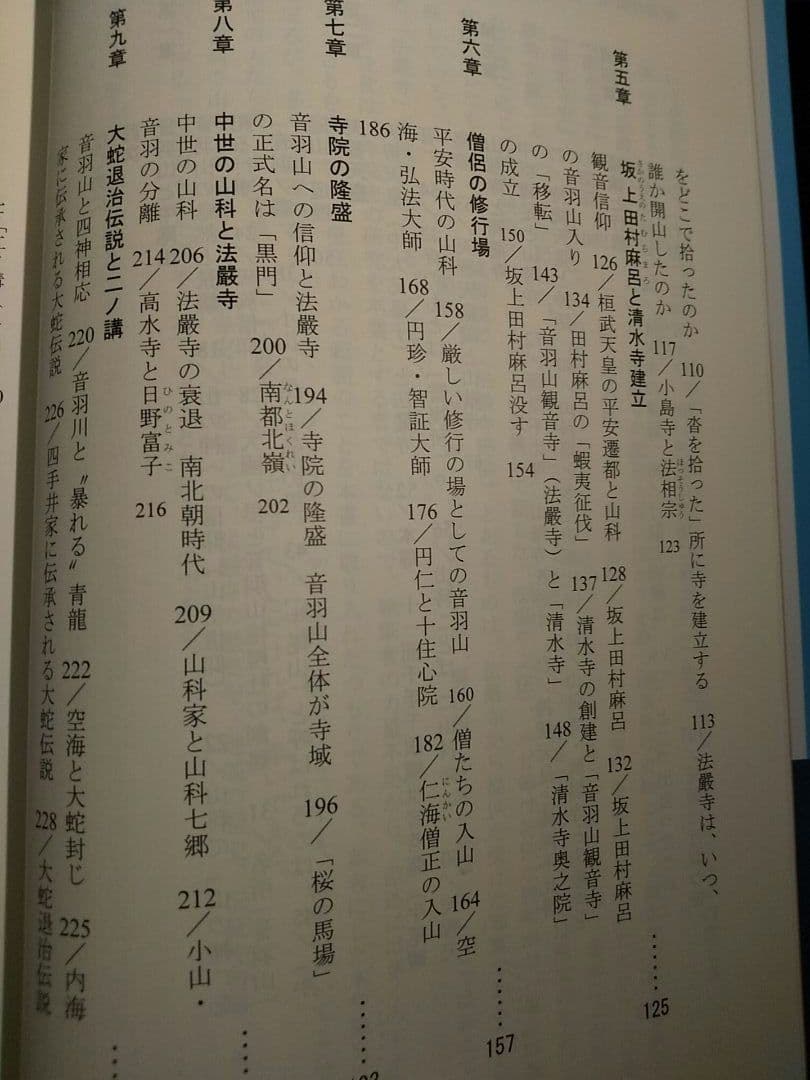 をどこで拾ったのか 110／「沓を拾った」所に寺を建立する 113／法嚴寺は、いつ、
誰か開山したのか 117／小島寺と法相宗 123
第五章 坂上田村麻呂と清水寺建立 …… 125
観音信仰 126／桓武天皇の平安遷都と山科 128／坂上田村麻呂 132／坂上田村麻呂
の音羽山入り 134／田村麻呂の「蝦夷征伐」 137／清水寺の創建と「音羽山観音寺」
の「移転」 143／「音羽山観音寺」（法嚴寺）と「清水寺」 148／「清水寺奥之院」
の成立 150／坂上田村麻呂没す 154
第六章 僧侶の修行場 …… 157
平安時代の山科 158／厳しい修行の場としての音羽山 160／僧たちの入山 164／空
海・弘法大師 168／円珍・智証大師 176／円仁と十住心院 182／仁海僧正の入山
186
第七章 寺院の隆盛 ……
音羽山への信仰と法嚴寺 194／寺院の隆盛 音羽山全体が寺域 196／「桜の馬場」
の正式名は「黒門」 200／南都北嶺 202
第八章 中世の山科と法嚴寺 ……
中世の山科 206／法嚴寺の衰退 南北朝時代 209／山科家と山科七郷 212／小山・
音羽の分離 214／高水寺と日野富子 216
第九章 大蛇退治伝説と二ノ講 ……
音羽山と四神相応 220／音羽川と〝暴れる〟青龍 222／空海と大蛇封じ 225／内海
家に伝承される大蛇伝説 226／四手井家に伝承される大蛇伝説 228／大蛇退治伝説